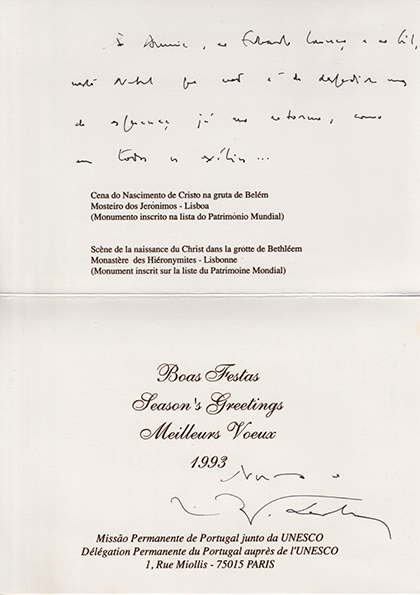 este Natal que não é de despedida mas
de esperança já no retorno, como
em todos os exílios...
Cena do Nascimento de Cristo na gruta de Belém
Mosteiro dos Jerónimos - Lisboa
(Monumento inscrito na lista do Património Mundial)
Scène de la naissance du Christ dans la grotte de Bethléem
Monastère des Hiéronymites - Lisbonne
(Monument inscrit sur la liste du Patrimoine Mondial)
Boas Festas
Season's Greetings
Meilleurs Voeux
1993
Missão Permanente de Portugal junto da UNESCO
Délégation Permanente du Portugal auprès de l'UNESCO
1, Rue Miollis - 75015 PARIS